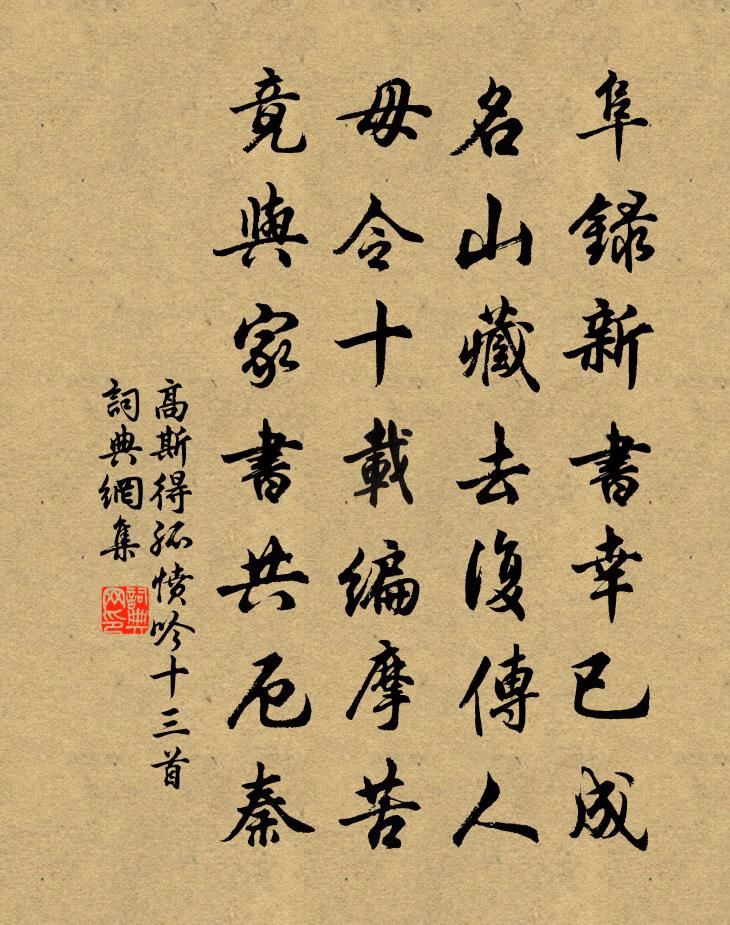 阜録新書幸已成
名山藏去復傳人
毋令十載編摩苦
竟與家書共厄秦
高斯得孤憤吟十三首
詞典網集
詞典網印